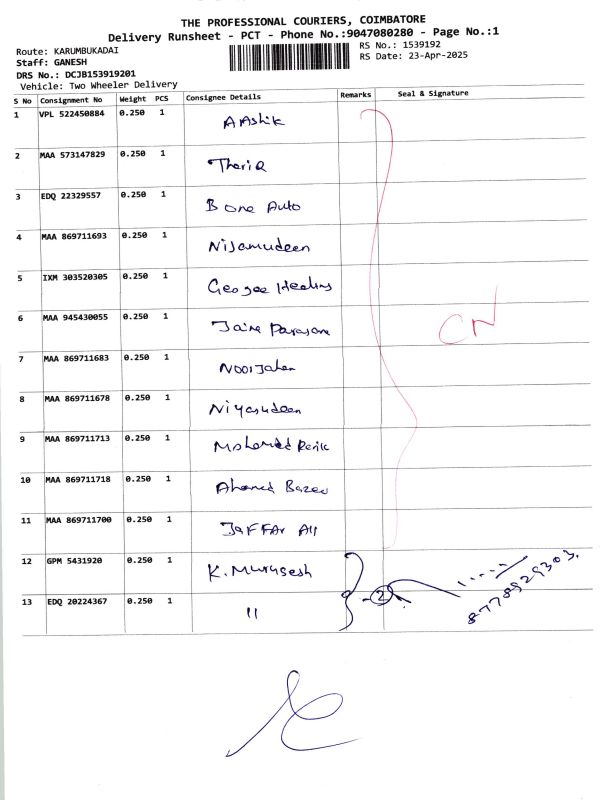 THE PROFESSIONAL COURIERS, COIMBATORE
Delivery Runsheet - PCT - Phone No.:9047080280 - Page No.:1
Route: KARUMBUKADAI
Staff: GANESH
DRS No.: DCJB153919201
Vehicle: Two Wheeler Delivery
RS No.: 1539192
RS Date: 23-Apr-2025
S No Consignment No Weight PCS Consignee Details Remarks Seal & Signature
1 VPL 522450884 0.250 1 A Ashik
2 MAA 573147829 0.250 1 Thariq
3 EDQ 22329557 0.250 1 B one Auto
4 MAA 869711693 0.250 1 Nijamudeen
5 IXM 303520305 0.250 1
6 MAA 945430055 0.250 1
CN
7 MAA 869711683 0.250 1 Noorjahan
8 MAA 869711678 0.250 1 Niyasudeen
9 MAA 869711713 0.250 1 Mohamed
10 MAA 869711718 0.250 1 Ahamed
11 MAA 869711700 0.250 1 Jaffar Ali
12 GPM 5431920 0.250 1 K. Murugesh
13 EDQ 20224367 0.250 1 "
2
8778929303